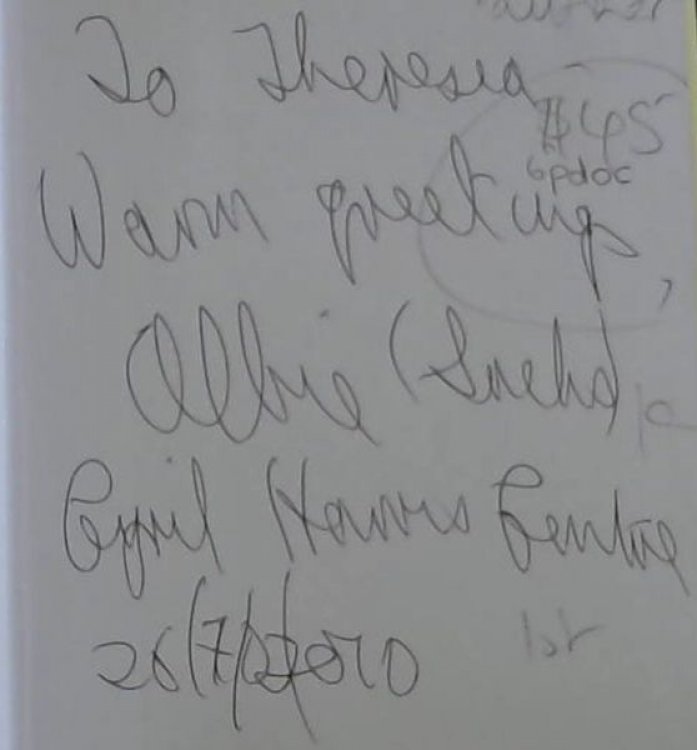 To Theresea
#45
6pdoc
Warm greetings,
Albie (Sachs)
Cyril Harris Centre
26/7/2010
1st